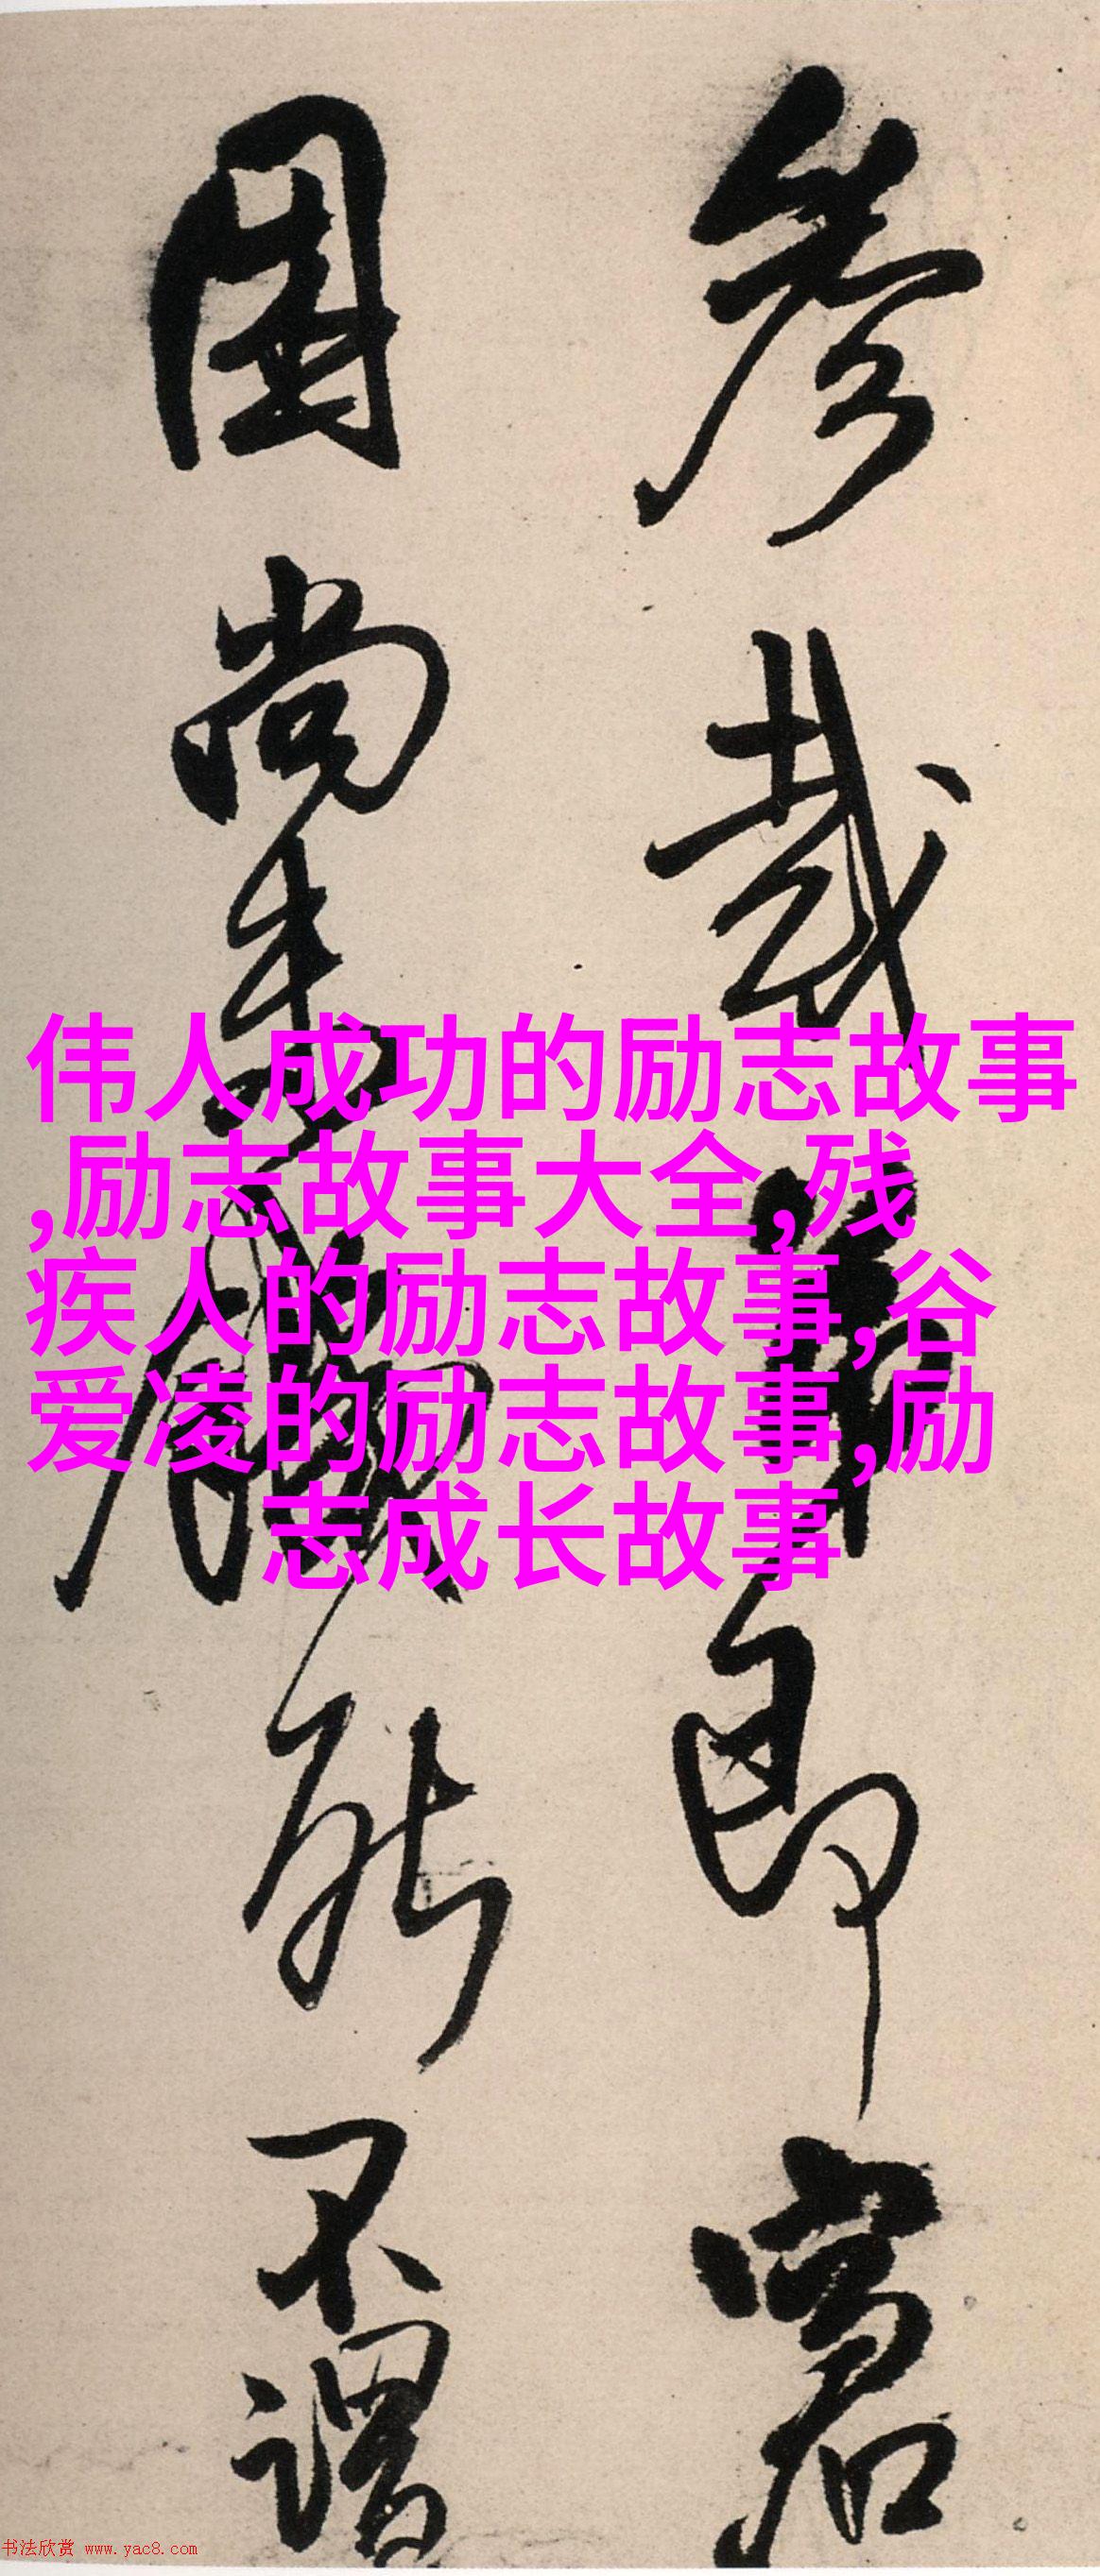 伟人成功的励志故事
,励志故事大全,残
疾人的励志故事,谷
爱凌的励志故事,励
志成长故事
即
窘
困
尚
能
不
谓
书法欣赏 www.yac8.com